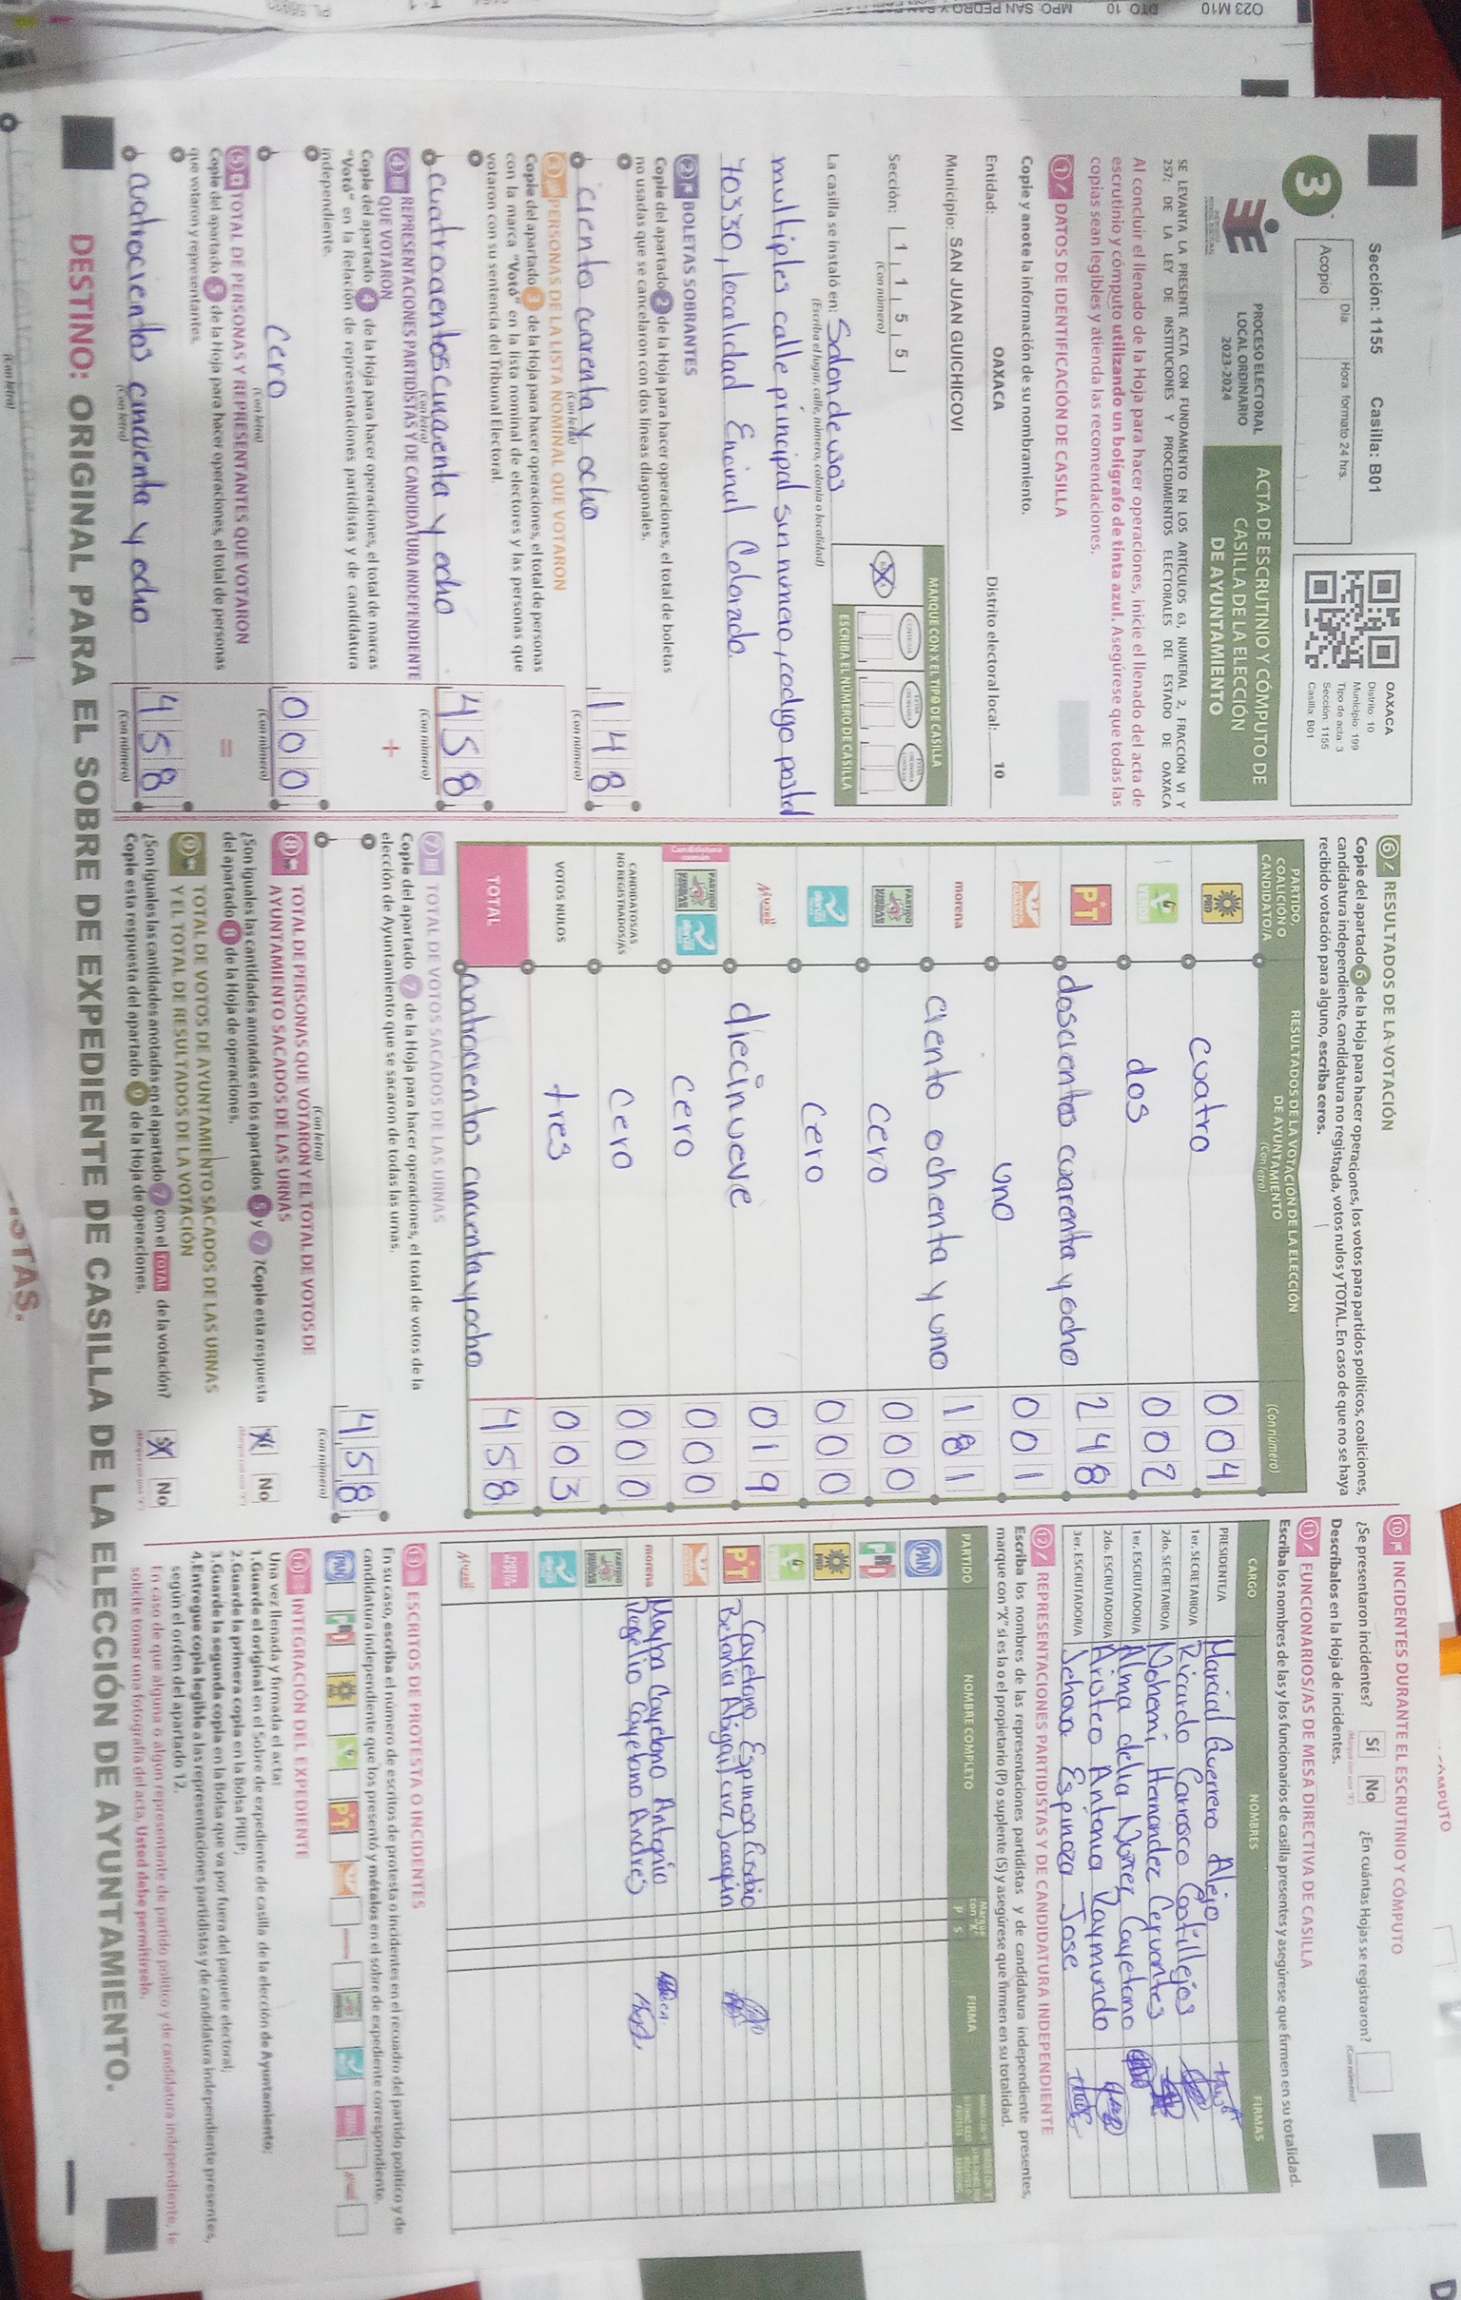 Sección: 1155 Casilla: B01
Día. Hora: formato 24 hrs.
Acopio
OAXACA
Distrito 10
Municipio 199
Tipo de acta 3
Sección 1155
Casilla B01
3
PROCESO ELECTORAL
LOCAL ORDINARIO
2023-2024
ACTA DE ESCRUTINIO Y CÓMPUTO DE
CASILLA DE LA ELECCIÓN
DE AYUNTAMIENTO
SE LEVANTA LA PRESENTE ACTA CON FUNDAMENTO EN LOS ARTÍCULOS 63, NUMERAL 2, FRACCIÓN VI Y
257; DE LA LEY DE INSTITUCIONES Y PROCEDIMIENTOS ELECTORALES DEL ESTADO DE OAXACA
Al concluir el llenado de la Hoja para hacer operaciones, inicie el llenado del acta de
escrutinio y cómputo utilizando un bolígrafo de tinta azul. Asegúrese que todas las
copias sean legibles y atienda las recomendaciones.
1 DATOS DE IDENTIFICACIÓN DE CASILLA
Copie y anote la información de su nombramiento.
Entidad: OAXACA Distrito electoral local: 10
Municipio: SAN JUAN GUICHICOVI
MARQUE CON X EL TIPO DE CASILLA
Sección: 1 1 5 5
(Con número)
ESCRIBA EL NÚMERO DE CASILLA
La casilla se instaló en: Salon de usos
(Escriba el lugar, calle, número, colonia o localidad)
multiples calle principal sin numero, codigo postal
70330, localidad Encinal Colorado.
2 BOLETAS SOBRANTES
Copie del apartado 2 de la Hoja para hacer operaciones, el total de boletas
no usadas que se cancelaron con dos líneas diagonales.
ciento cuarenta y ocho 148
(Con letra) (Con número)
3 PERSONAS DE LA LISTA NOMINAL QUE VOTARON
Copie del apartado 3 de la Hoja para hacer operaciones, el total de personas
con la marca "Votó" en la lista nominal de electores y las personas que
votaron con su sentencia del Tribunal Electoral.
cuatrocientos cincuenta y ocho 458
(Con letra) (Con número)
4 REPRESENTACIONES PARTIDISTAS Y DE CANDIDATURA INDEPENDIENTE
QUE VOTARON
+
Copie del apartado 4 de la Hoja para hacer operaciones, el total de marcas
"Votó" en la Relación de representaciones partidistas y de candidatura
independiente.
cero 000
(Con letra) (Con número)
5 TOTAL DE PERSONAS Y REPRESENTANTES QUE VOTARON
=
Copie del apartado 5 de la Hoja para hacer operaciones, el total de personas
que votaron y representantes.
cuatrocientos cincuenta y ocho 458
(Con letra) (Con número)
6 RESULTADOS DE LA VOTACIÓN
Copie del apartado 6 de la Hoja para hacer operaciones, los votos para partidos políticos, coaliciones,
candidatura independiente, candidatura no registrada, votos nulos y TOTAL. En caso de que no se haya
recibido votación para alguno, escriba ceros.
PARTIDO,
COALICIÓN O
CANDIDATO/A
RESULTADOS DE LA VOTACIÓN DE LA ELECCIÓN
DE AYUNTAMIENTO
(Con letra)
(Con número)
PRD cuatro 004
VERDE dos 002
PT doscientos cuarenta y ocho 248
uno 001
morena ciento ochenta y uno 181
PARTIDO cero 000
cero 000
Mujer diecinueve 019
Candidatura común PARTIDO cero 000
CANDIDATOS/AS
NO REGISTRADOS/AS cero 000
VOTOS NULOS tres 003
TOTAL cuatrocientos cincuenta y ocho 458
7 TOTAL DE VOTOS SACADOS DE LAS URNAS
Copie del apartado 7 de la Hoja para hacer operaciones, el total de votos de la
elección de Ayuntamiento que se sacaron de todas las urnas.
458
(Con letra) (Con número)
8 TOTAL DE PERSONAS QUE VOTARON Y EL TOTAL DE VOTOS DE
AYUNTAMIENTO SACADOS DE LAS URNAS
¿Son iguales las cantidades anotadas en los apartados 5 y 7 ?Copie esta respuesta
del apartado 8 de la Hoja de operaciones. No
9 TOTAL DE VOTOS DE AYUNTAMIENTO SACADOS DE LAS URNAS
Y EL TOTAL DE RESULTADOS DE LA VOTACIÓN
¿Son iguales las cantidades anotadas en el apartado 7 con el TOTAL de la votación?
Copie esta respuesta del apartado 9 de la Hoja de operaciones. Sí No
10 INCIDENTES DURANTE EL ESCRUTINIO Y CÓMPUTO
¿Se presentaron incidentes? Sí No ¿En cuántas Hojas se registraron?
Descríbalos en la Hoja de incidentes.
11 FUNCIONARIOS/AS DE MESA DIRECTIVA DE CASILLA
Escriba los nombres de las y los funcionarios de casilla presentes y asegúrese que firmen en su totalidad.
CARGO NOMBRES FIRMAS
PRESIDENTE/A Marcial Guerrero Alejo
1er. SECRETARIO/A Ricardo Carrasco Castillejos
2do. SECRETARIO/A Nohemi Hernandez Cervantes
1er. ESCRUTADOR/A Alma delia Cayetano
2do. ESCRUTADOR/A Aristeo Antonio Raymundo
3er. ESCRUTADOR/A Jehova Espinoza Jose
12 REPRESENTACIONES PARTIDISTAS Y DE CANDIDATURA INDEPENDIENTE
Escriba los nombres de las representaciones partidistas y de candidatura independiente presentes,
marque con "X" si es la o el propietario (P) o suplente (S) y asegúrese que firmen en su totalidad.
PARTIDO NOMBRE COMPLETO P S FIRMA
PAN
PRI
PRD
PT Cayetano Espinosa Eusebio
Betania Abigail cruz Joaquin
morena Mayra Cayetano Antonio
Rogelio Cayetano Andres
Mujer
13 ESCRITOS DE PROTESTA O INCIDENTES
En su caso, escriba el número de escritos de protesta o incidentes en el recuadro del partido político y de
candidatura independiente que los presentó y métalos en el sobre de expediente correspondiente.
PAN PRI PT
14 INTEGRACIÓN DEL EXPEDIENTE
Una vez llenada y firmada el acta:
1.Guarde el original en el Sobre de expediente de casilla de la elección de Ayuntamiento;
2.Guarde la primera copia en la Bolsa PREP;
3.Guarde la segunda copia en la Bolsa que va por fuera del paquete electoral;
4.Entregue copia legible a las representaciones partidistas y de candidatura independiente presentes,
según el orden del apartado 12.
En caso de que alguna o algún representante de partido político y de candidatura independiente, le
solicite tomar una fotografía del acta. Usted debe permitírselo.
DESTINO: ORIGINAL PARA EL SOBRE DE EXPEDIENTE DE CASILLA DE LA ELECCIÓN DE AYUNTAMIENTO.